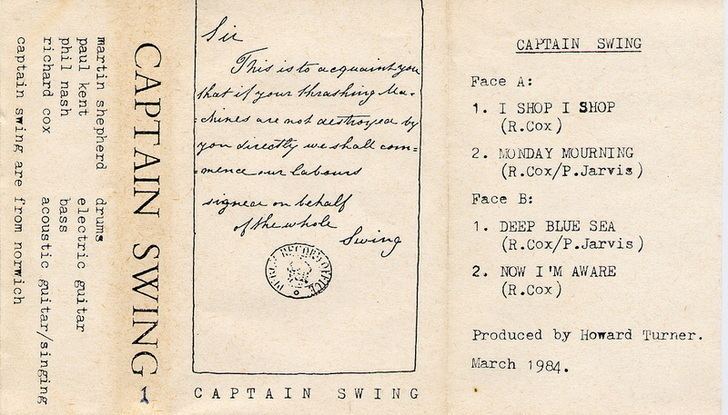 martin shepherd drums
paul kent electric guitar
phil nash bass
richard cox acoustic guitar/singing
captain swing are from norwich
CAPTAIN SWING
1
Sir
This is to acquaint you
that if your thrashing Ma-
chines are not destroyed by
you directly we shall com-
mence our labours
signed on behalf
of the whole
Swing
PUBLIC RECORD OFFICE
CAPTAIN SWING
CAPTAIN SWING
Face A:
1. I SHOP I SHOP
(R.Cox)
2. MONDAY MOURNING
(R.Cox/P.Jarvis)
Face B:
1. DEEP BLUE SEA
(R.Cox/P.Jarvis)
2. NOW I'M AWARE
(R.Cox)
Produced by Howard Turner.
March 1984.